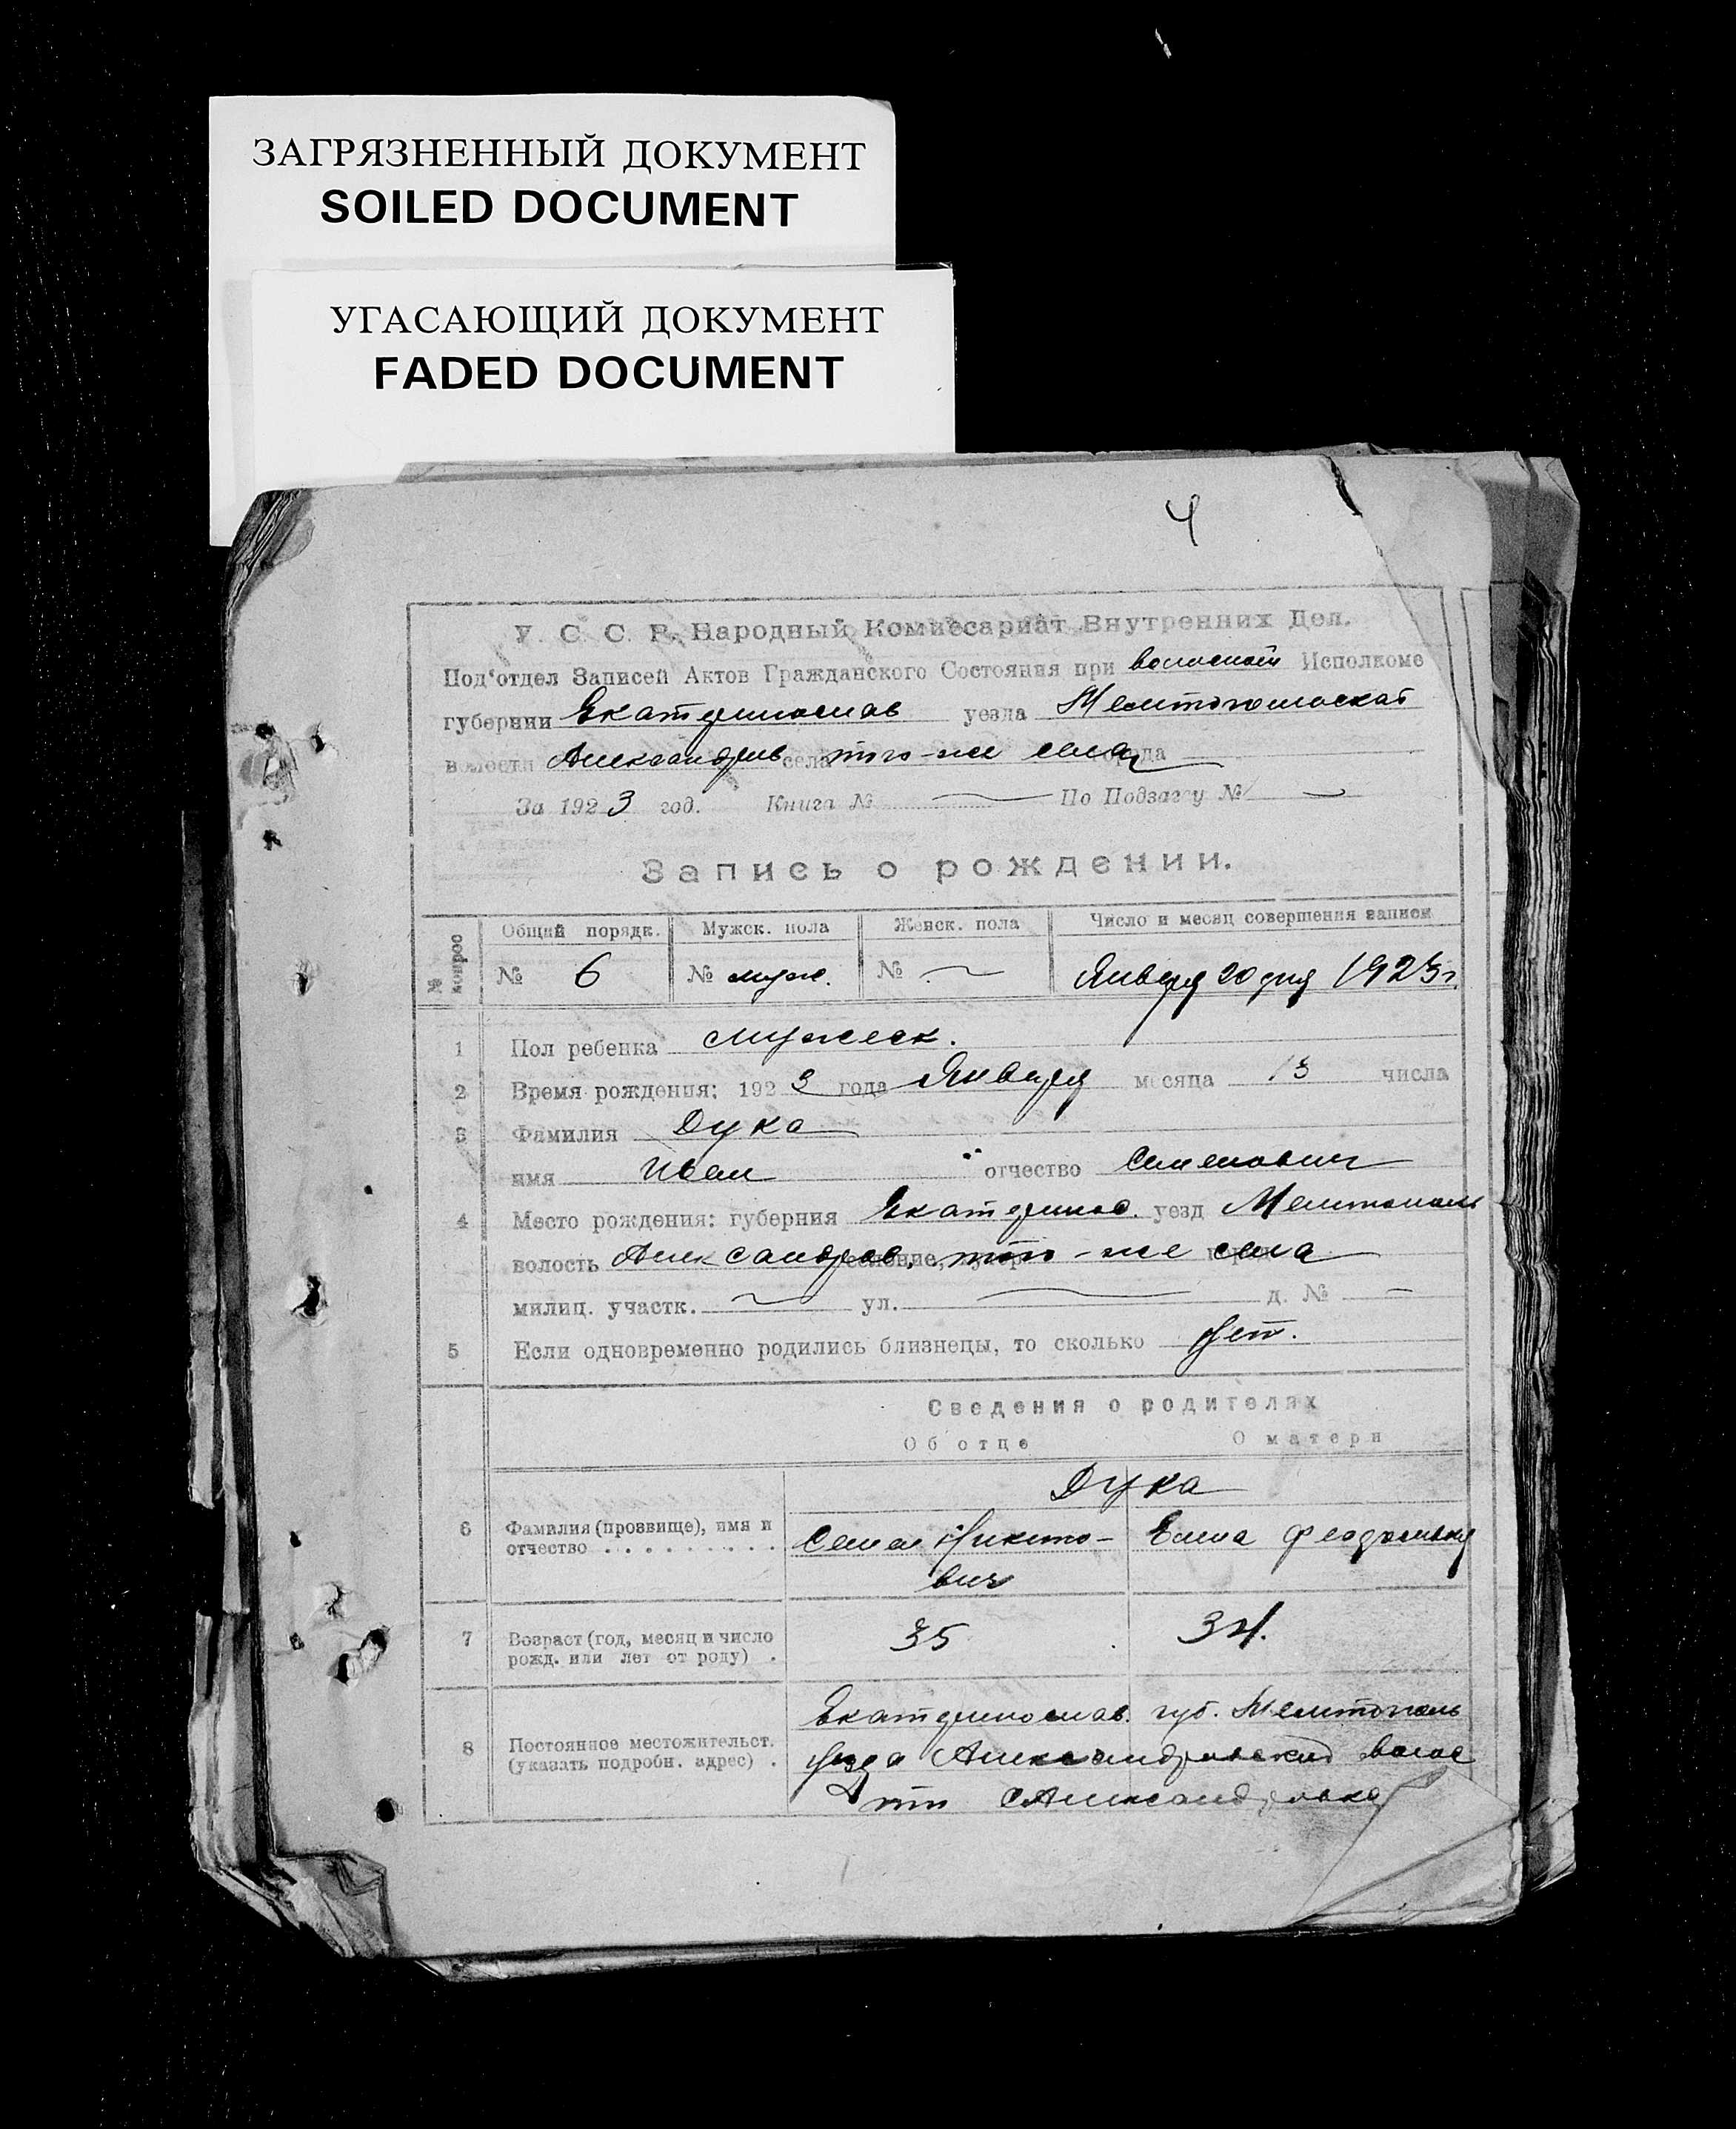 ЗАГРЯЗНЕННЫЙ ДОКУМЕНТ
SOILED DOCUMENT
УГАСАЮЩИЙ ДОКУМЕНТ
FADED DOCUMENT
4
У. С. С. Р. Народный Комиссариат Внутренних Дел.
Под'отдел Записей Актов Гражданского Состояния при волосном Исполкоме
губернии Екатеринослав уезда Мелитопольской
волости Александров села того-же села города
За 1923 год. Книга № По Подзагсу №
Запись о рождении.
№ вопрос Общий порядк. Мужск. пола Женск. пола Число и месяц совершения записи
№ 6 № муж. № Января 20 дня 1923 г.
1 Пол ребенка мужеск.
2 Время рождения: 1923 года Января месяца 13 числа
3 Фамилия Дука
имя Иван отчество Семенович
4 Место рождения: губерния Екатеринос. уезд Мелитополь
волость Александров, селение, того-же села
милиц. участк. ул. д. №
5 Если одновременно родились близнецы, то сколько Нет.
Сведения о родителях
Об отце О матери
Дука
6 Фамилия (прозвище), имя и отчество Семен Никито-
вич
Елена Феодоровна
7 Возраст (год, месяц и число рожд. или лет от роду) 35 34.
8 Постоянное местожительст. (указать подробн. адрес)
Екатеринослав. губ. Мелитополь
уезда Александровской волос
ти с Александровка